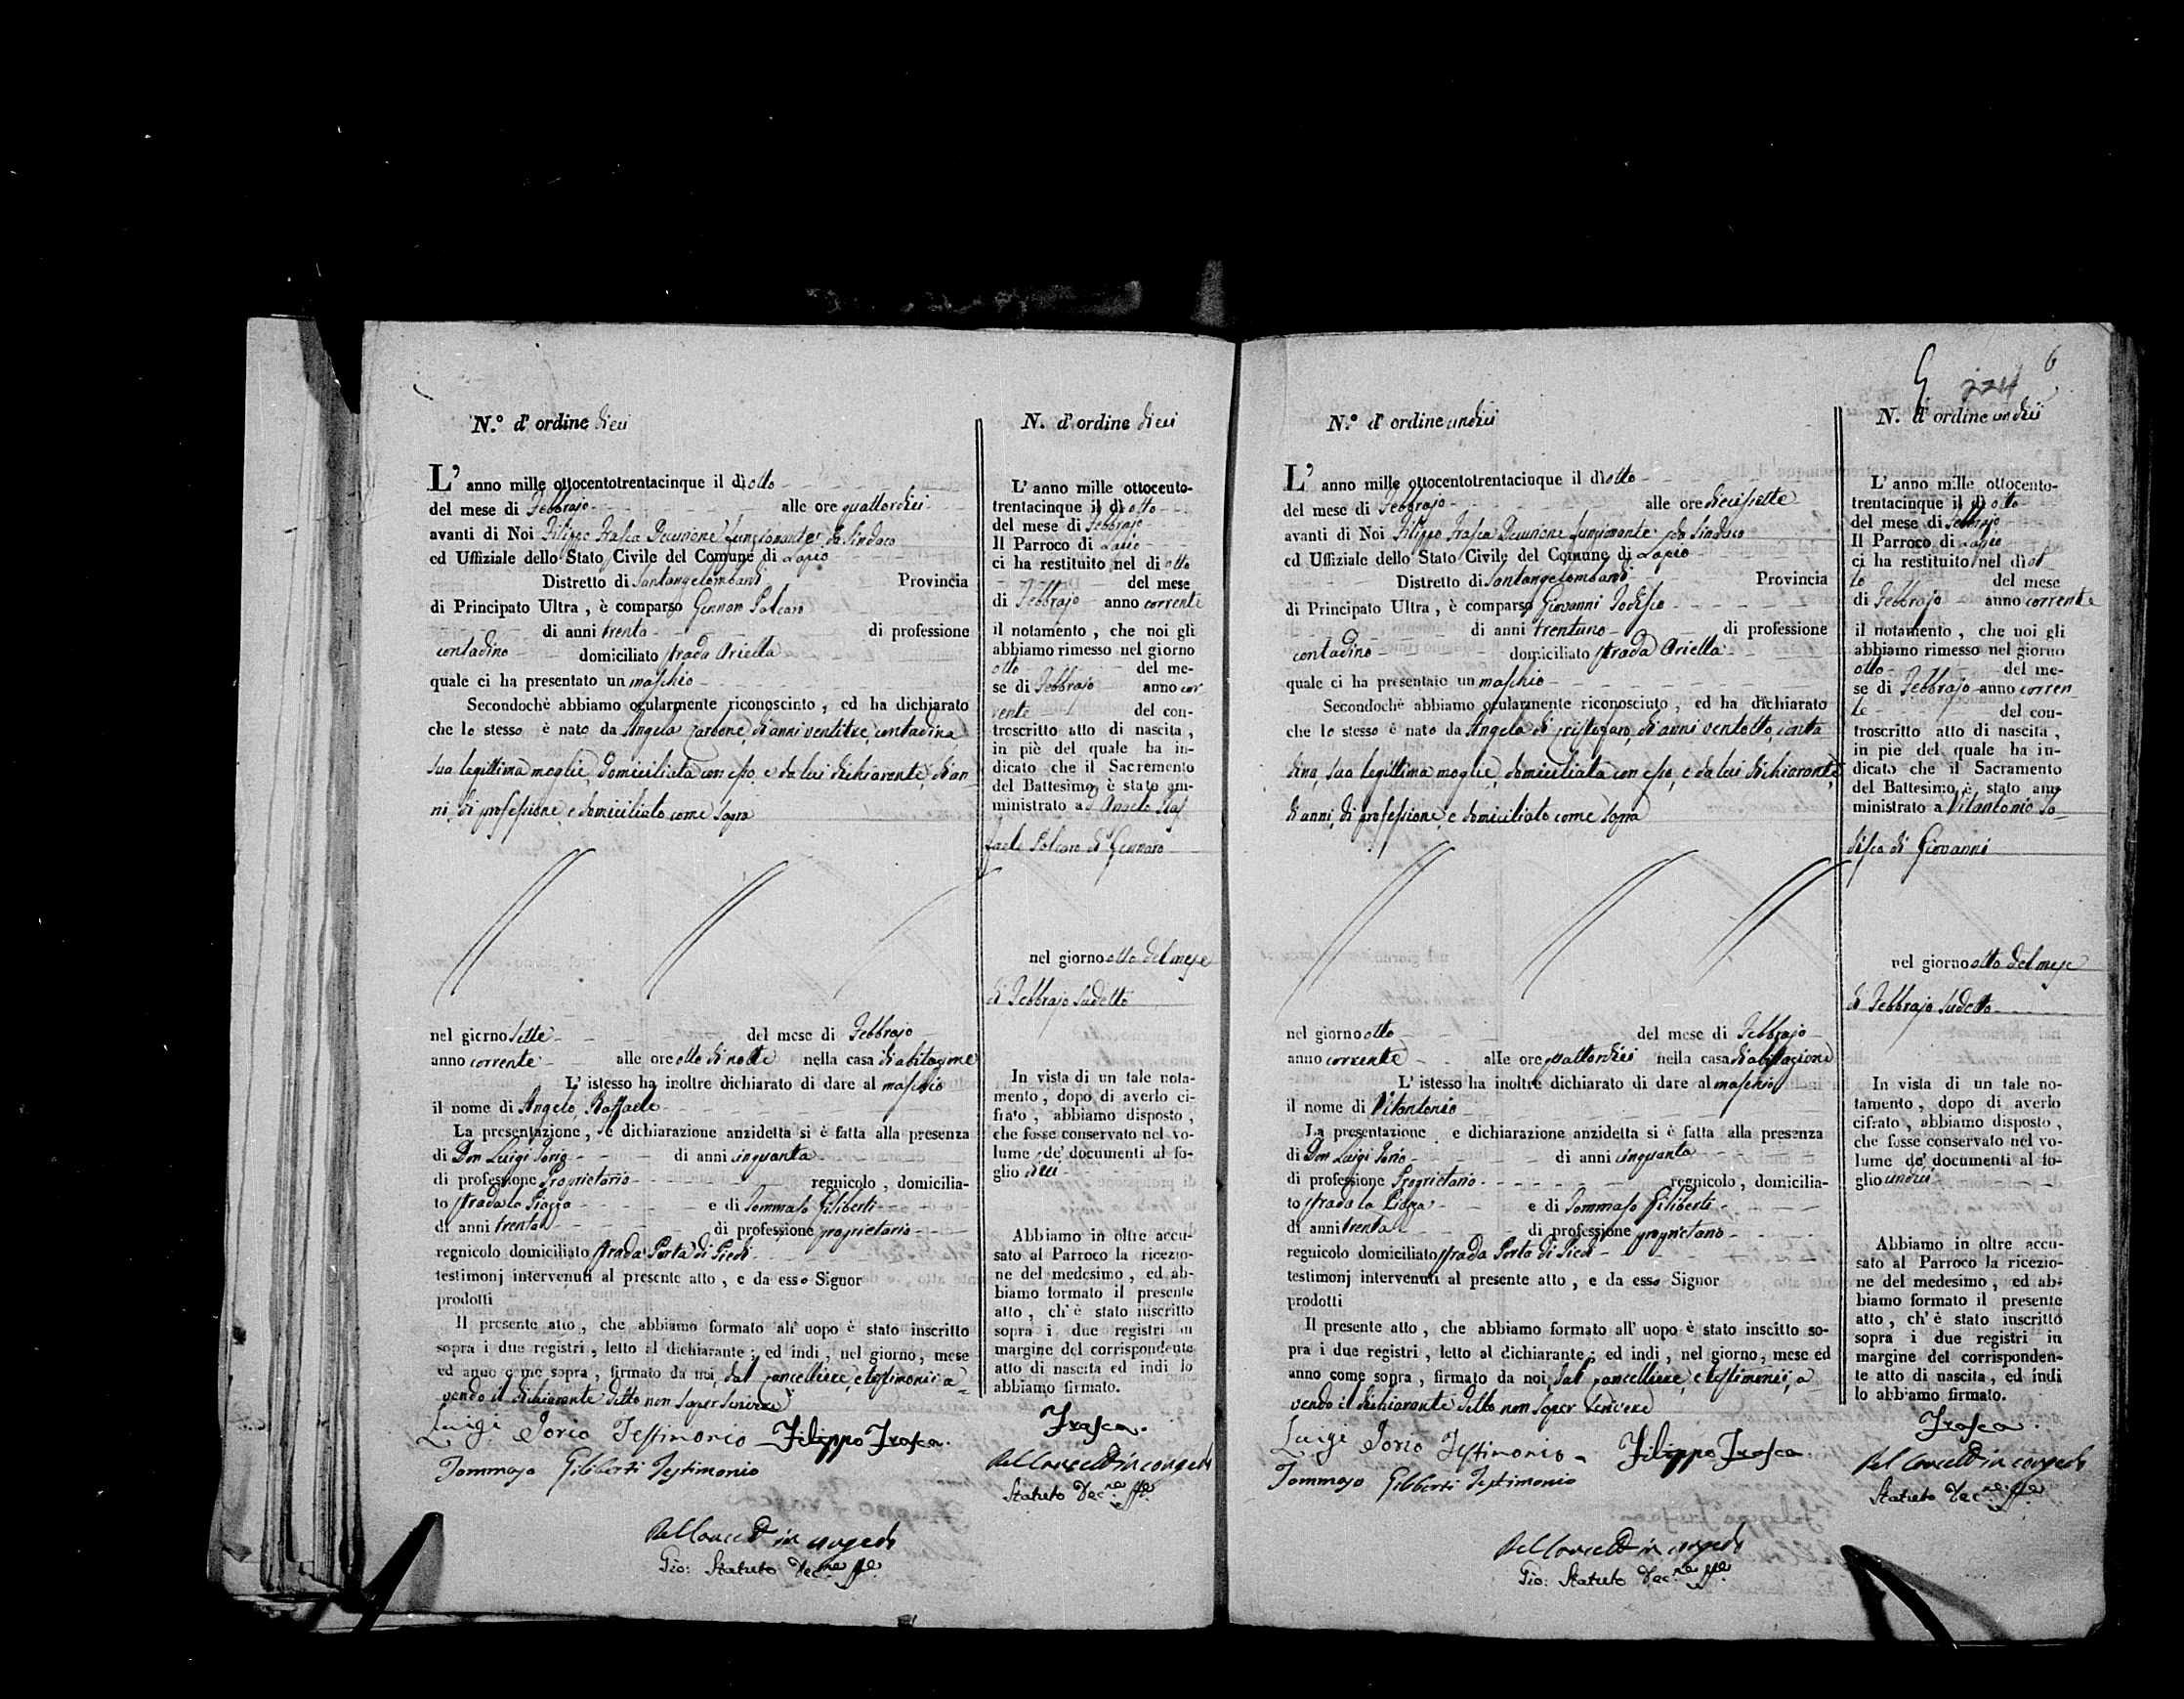 N.° d' ordine dieci
L' anno mille ottocentotrentacinque il dì otto
del mese di Febbrajo alle ore quattordici
avanti di Noi Filippo Frasca Decurione funzionante da Sindaco
ed Uffiziale dello Stato Civile del Comune di Lapio
Distretto di Santangelombardi Provincia
di Principato Ultra, è comparso Gennaro Polcaro
di anni trenta di professione
contadino domiciliato strada Ariella
quale ci ha presentato un maschio
Secondochè abbiamo ocularmente riconosciuto, ed ha dichiarato
che lo stesso è nato da Angela Carbone, di anni ventitre, contadina,
sua legittima moglie, domiciliata con esso, e da lui dichiarante, di an-
ni, di professione, e domiciliato come sopra
nel giorno sette del mese di Febbrajo
anno corrente alle ore otto di notte nella casa di abitazione
L' istesso ha inoltre dichiarato di dare al maschio
il nome di Angelo Raffaele
La presentazione, e dichiarazione anzidetta si è fatta alla presenza
di Don Luigi Iorio di anni cinquanta
di professione Proprietario regnicolo, domicilia-
to strada la Piazza e di Tommaso Giliberti
di anni trenta di professione proprietario
regnicolo domiciliato strada Porta di Piedi
testimonj intervenuti al presente atto, e da esso Signor
prodotti
Il presente atto, che abbiamo formato all' uopo è stato inscritto
sopra i due registri, letto al dichiarante; ed indi, nel giorno, mese
ed anno come sopra, firmato da noi, dal Cancelliere, e testimonii, a-
vendo il dichiarante detto non saper scrivere
Luigi Iorio Testimonio Filippo Frasca.
Tommaso Giliberti Testimonio
Pel Cancell.e in congedo
Gio: Statuto Dec.ne ff.e
N. d' ordine dieci
L' anno mille ottocento-
trentacinque il dì otto
del mese di Febbrajo
Il Parroco di Lapio
ci ha restituito nel dì otto
del mese
di Febbrajo anno corrente
il notamento, che noi gli
abbiamo rimesso nel giorno
otto del me-
se di Febbrajo anno cor
rente del con-
troscritto atto di nascita,
in piè del quale ha in-
dicato che il Sacremento
del Battesimo è stato am-
ministrato a Angelo Raf
faele Polcaro di Gennaro
nel giorno otto del mese
di Febbrajo sudetto
In vista di un tale nota-
mento, dopo di averlo ci-
frato, abbiamo disposto,
che fosse conservato nel vo-
lume de' documenti al fo-
glio dieci
Abbiamo in oltre accu-
sato al Parroco la ricezio-
ne del medesimo, ed ab-
biamo formato il presente
atto, ch' è stato inscritto
sopra i due registri in
margine del corrispondente
atto di nascita ed indi lo
abbiamo firmato.
Frasca.
Pel Cancell.e in congedo
Statuto Dec.ne ff.e
6
224
N.° d' ordine undici
L' anno mille ottocentotrentacinque il dì otto
del mese di Febbrajo alle ore diecisette
avanti di Noi Filippo Frasca Decurione funzionante da Sindaco
ed Uffiziale dello Stato Civile del Comune di Lapio
Distretto di Santangelombardi Provincia
di Principato Ultra, è comparso Giovanni Iodisco
di anni trentuno di professione
contadino domiciliato strada Ariella
quale ci ha presentato un maschio
Secondochè abbiamo ocularmente riconosciuto, ed ha dichiarato
che lo stesso è nato da Angela di Cristofaro, di anni ventotto, conta
dina, sua legittima moglie, domiciliata con esso, e da lui dichiarante,
di anni, di professione, e domiciliato come sopra
nel giorno otto del mese di Febbrajo
anno corrente alle ore quattordici nella casa di abitazione
L' istesso ha inoltre dichiarato di dare al maschio
il nome di Vitantonio
La presentazione e dichiarazione anzidetta si è fatta alla presenza
di Don Luigi Iorio di anni cinquanta
di professione Proprietario regnicolo, domicilia-
to strada la Piazza e di Tommaso Giliberti
di anni trenta di professione proprietario
regnicolo domiciliato strada Porta di Piedi
testimonj intervenuti al presente atto, e da esso Signor
prodotti
Il presente atto, che abbiamo formato all' uopo è stato inscitto so-
pra i due registri, letto al dichiarante; ed indi, nel giorno, mese ed
anno come sopra, firmato da noi, dal Cancelliere, e testimonii, a
vendo il dichiarante detto non saper scrivere
Luigi Iorio Testimonio Filippo Frasca
Tommaso Giliberti Testimonio
Pel Cancell.e in congedo
Gio: Statuto Dec.ne ff.e
N. d' ordine undici
L' anno mille ottocento-
trentacinque il dì otto
del mese di Febbrajo
Il Parroco di Lapio
ci ha restituito nel dì ot
to del mese
di Febbrajo anno corrente
il notamento, che noi gli
abbiamo rimesso nel giorno
otto del me-
se di Febbrajo anno corren
te del con-
troscritto atto di nascita,
in pie del quale ha in-
dicato che il Sacramento
del Battesimo è stato am-
ministrato a Vitantonio Io-
disco di Giovanni
nel giorno otto del mese
di Febbrajo sudetto
In vista di un tale no-
tamento, dopo di averlo
cifrato, abbiamo disposto,
che fosse conservato nel vo-
lume de' documenti al fo-
glio undici
Abbiamo in oltre accu-
sato al Parroco la ricezio-
ne del medesimo, ed ab-
biamo formato il presente
atto, ch' è stato inscritto
sopra i due registri in
margine del corrisponden-
te atto di nascita, ed indi
lo abbiamo firmato.
Frasca
Pel Cancell.e in congedo
Statuto Dec.ne ff.e